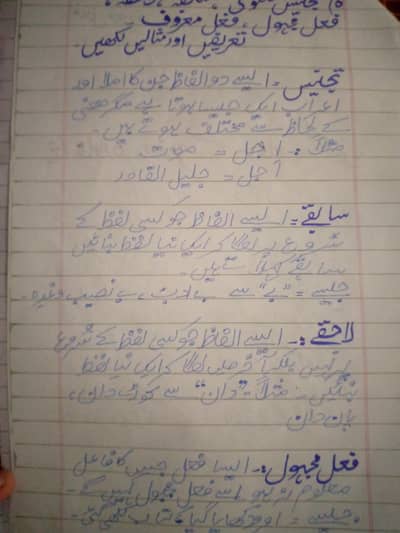 فعل مجہول، فعل معروف۔
تعریفیں اور مثالیں لکھیں۔
تجنیس:۔ ایسے دو الفاظ جن کا املا اور
اعراب ایک جیسا ہوتا ہے مگر معنی
کے لحاظ سے مختلف ہوتے ہیں۔
مثلاً:۔ اجل = موت
اجل = جلیل القدر
سابقے:۔ ایسے الفاظ جو کسی لفظ کے
شروع پر لگا کر ایک نیا لفظ بنائیں
سابقے کہلاتے ہیں۔
جیسے = "بے" سے بے ادب، بے نصیب وغیرہ۔
لاحقے:۔ ایسے الفاظ جو کسی لفظ کے شروع
پر نہیں بلکہ آخر میں لگا کر ایک نیا لفظ
بنائیں۔ مثلاً:۔ "دان" سے کوڑے دان،
پان دان
فعل مجہول:۔ ایسا فعل جس کا فاعل
معلوم نہ ہو اسے فعل مجہول کہیں گے۔
جیسے = کتاب لکھی گئی۔